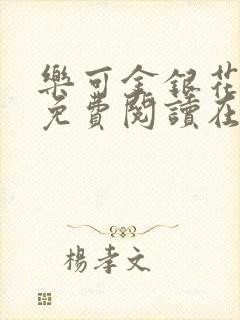 樂可金銀花
免費閱讀在
楊孝文